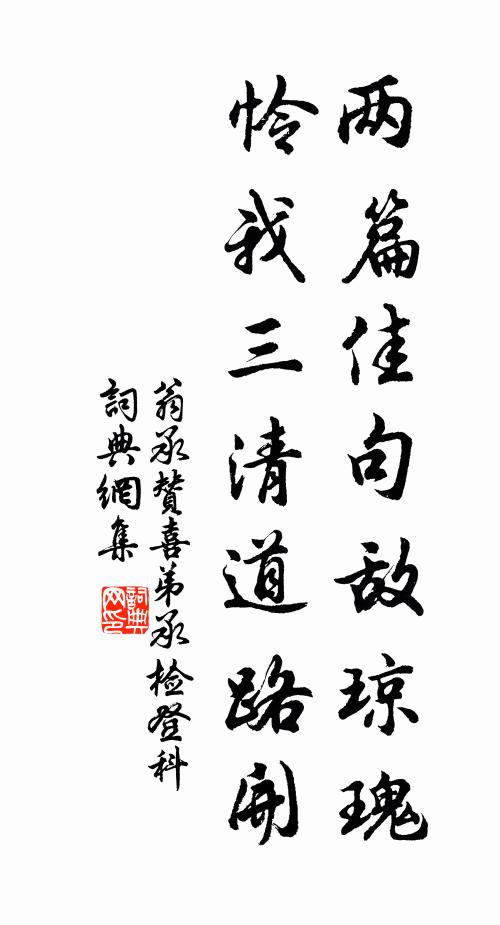 两篇佳句敌琼瑰
怜我三清道路開
翁承贊喜弟承检登科
詞典網集
詞典网印